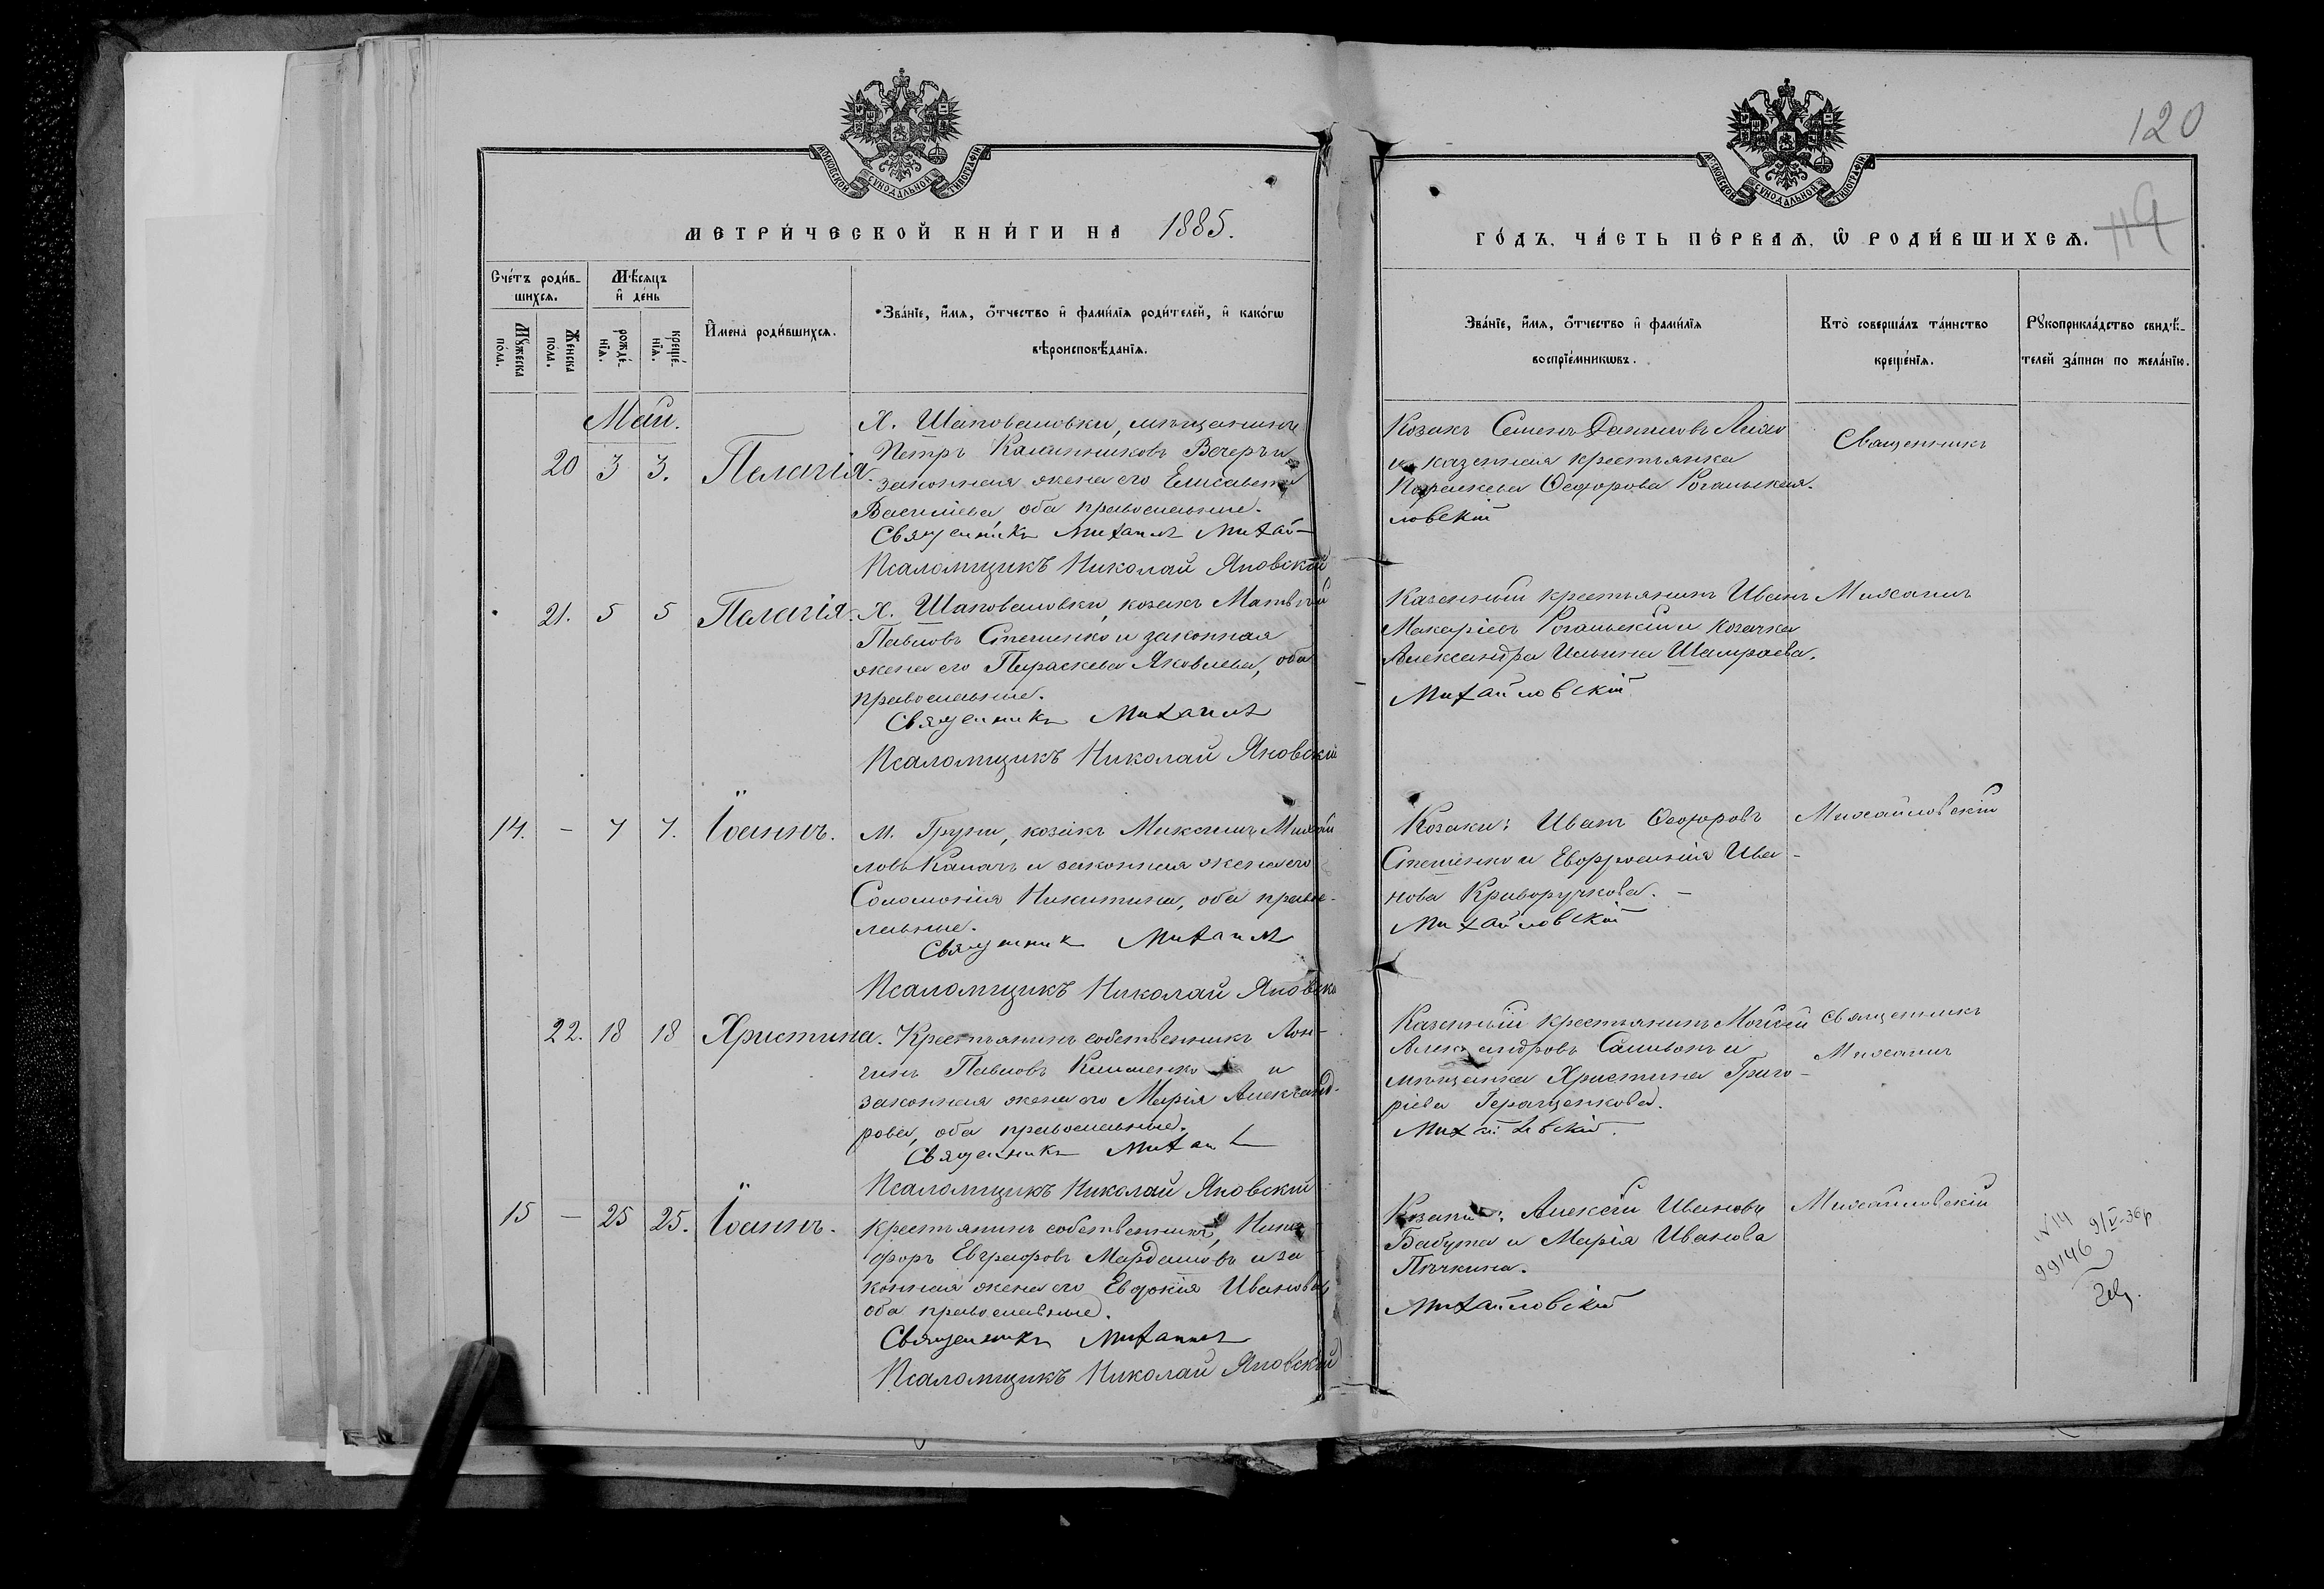 120
119
МОСКОВСКОЙ СѴНОДАЛЬНОЙ ТИПОГРАФІИ
МОСКОВСКОЙ СѴНОДАЛЬНОЙ ТИПОГРАФІИ
МЕТРИ́ЧЕСКОЙ КНИ́ГИ НА 1885.
ГО́ДЪ, ЧА́СТЬ ПЕ́РВАѦ, Ѡ РОДИ́ВШИХСѦ.
Сче́тъ роди́в-
шихсѧ.
Мꙋ́жеска
по́ла.
Же́нска
по́ла.
Мѣ́сѧцъ
и де́нь
рожде́-
нїѧ.
креще́-
нїѧ.
И҆мена̀ роди́вшихсѧ.
Зва́нїе, и҆́мѧ, ѻ҆́тчество и҆ фами́лїѧ роди́телей, и҆ како́гѡ
вѣроисповѣ́данїѧ.
Зва́нїе, и҆́мѧ, ѻ҆́тчество и҆ фами́лїѧ
воспрїе́мникѡвъ.
Кто̀ соверша́лъ та́инство
креще́нїѧ.
Рꙋкоприкла́дство свидѣ́-
телей за́писи по жела́нїю.
Май.
20 3 3. Пелагія.
Х. Шаповаловки, мѣщанинъ
Петръ Калинниковъ Вечеръ и
законная жена его Елисавета
Василіева оба православные.
Священикъ Михаилъ Михай-
Псаломщикъ Николай Яновскій
Козакъ Семенъ Данииловъ
и казенная крестьянка
Параскева Ѳеодорова Роганьская.
ловскій
Священникъ
21. 5 5 Пелагія.
Х. Шаповаловки, козакъ Матвѣй
Павловъ Стешенко и законная
жена его Параскева Яковлева, оба
православные.
Священикъ Михаилъ
Псаломщикъ Николай Яновскій
Казенный крестьянинъ Иванъ
Макаріевъ Роганьскій и козачка
Александра Ильина Шамраева.
Михайловскій
Михаилъ
14. - 7 7. Іоаннъ.
М. Груни, козакъ Михаилъ Михай
ловъ Калачъ и законная жена его
Соломонія Никитина, оба право-
славные.
Священник Михаилъ
Псаломщикъ Николай Яновскі
Козаки: Иванъ Ѳеодоровъ
Стешенко и Евфросинія Ива-
нова Криворучкова. -
Михайловскій
Михайловскій
22. 18 18 Христина.
Крестьянинъ собственникъ Лон-
гинъ Павловъ Клименко и
законная жена его Марія Александ-
рова, оба православные.
Священикъ Михаил
Псаломщикъ Николай Яновскій
Казенный крестьянинъ Мойсей
Александровъ Саливонъ и
мѣщанка Христина Григо-
ріева Геращенкова.
Михайловскій.
Священникъ
Михаилъ
15 - 25 25. Іоаннъ.
Крестьянинъ собственникъ, Ники
форъ Евграфовъ Мардашовъ и за
конная жена его Евдокія Иванова
оба православные.
Священикъ Михаилъ
Псаломщикъ Николай Яновскій
Козаки: Алексѣй Ивановъ
Бабута и Марія Иванова
Пѣчкина.
Михайловскій
Михайловскій
N 14 9/V-36р
99146